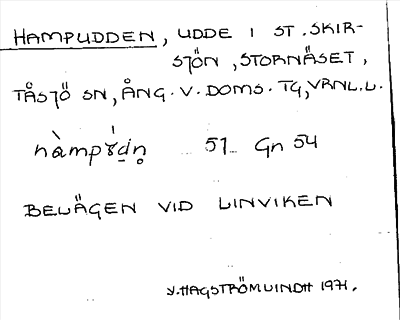 HAMPUDDEN, UDDE I ST. SKIR-
SJÖN, STORNÄSET,
TÅSJÖ SN, ÅNG. V. DOMS. TG, VRNL. L.
nàmpɤ́ḍn̥ 51 Gn 54
BELÄGEN VID LINVIKEN
V. HAGSTRÖMLINDH 1971.